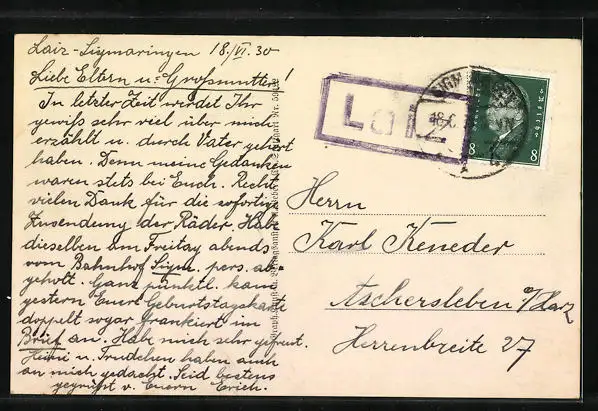 Laiz-Sigmaringen 18./VI. 30
Liebe Eltern u. Grossmutter!
In letzter Zeit werdet Ihr
gewiß sehr viel über mich
erzählt u. durch Vater gehört
haben. Denn meine Gedanken
waren stets bei Euch. Recht
vielen Dank für die sofortige
Zusendung der Räder. Habe
dieselben am Freitag abends
vom Bahnhof Sigm. pers. ab-
geholt. Ganz pünktl. kam
gestern Eure Geburtstagskarte
doppelt sogar frankiert im
Brief an. Habe mich sehr gefreut.
Heini u. Trudchen haben auch
an mich gedacht. Seid bestens
gegrüßt v. Euern Erich.
Laiz
8 8
Herrn
Karl Keneder
Aschersleben a/Harz
Herrenbreite 27